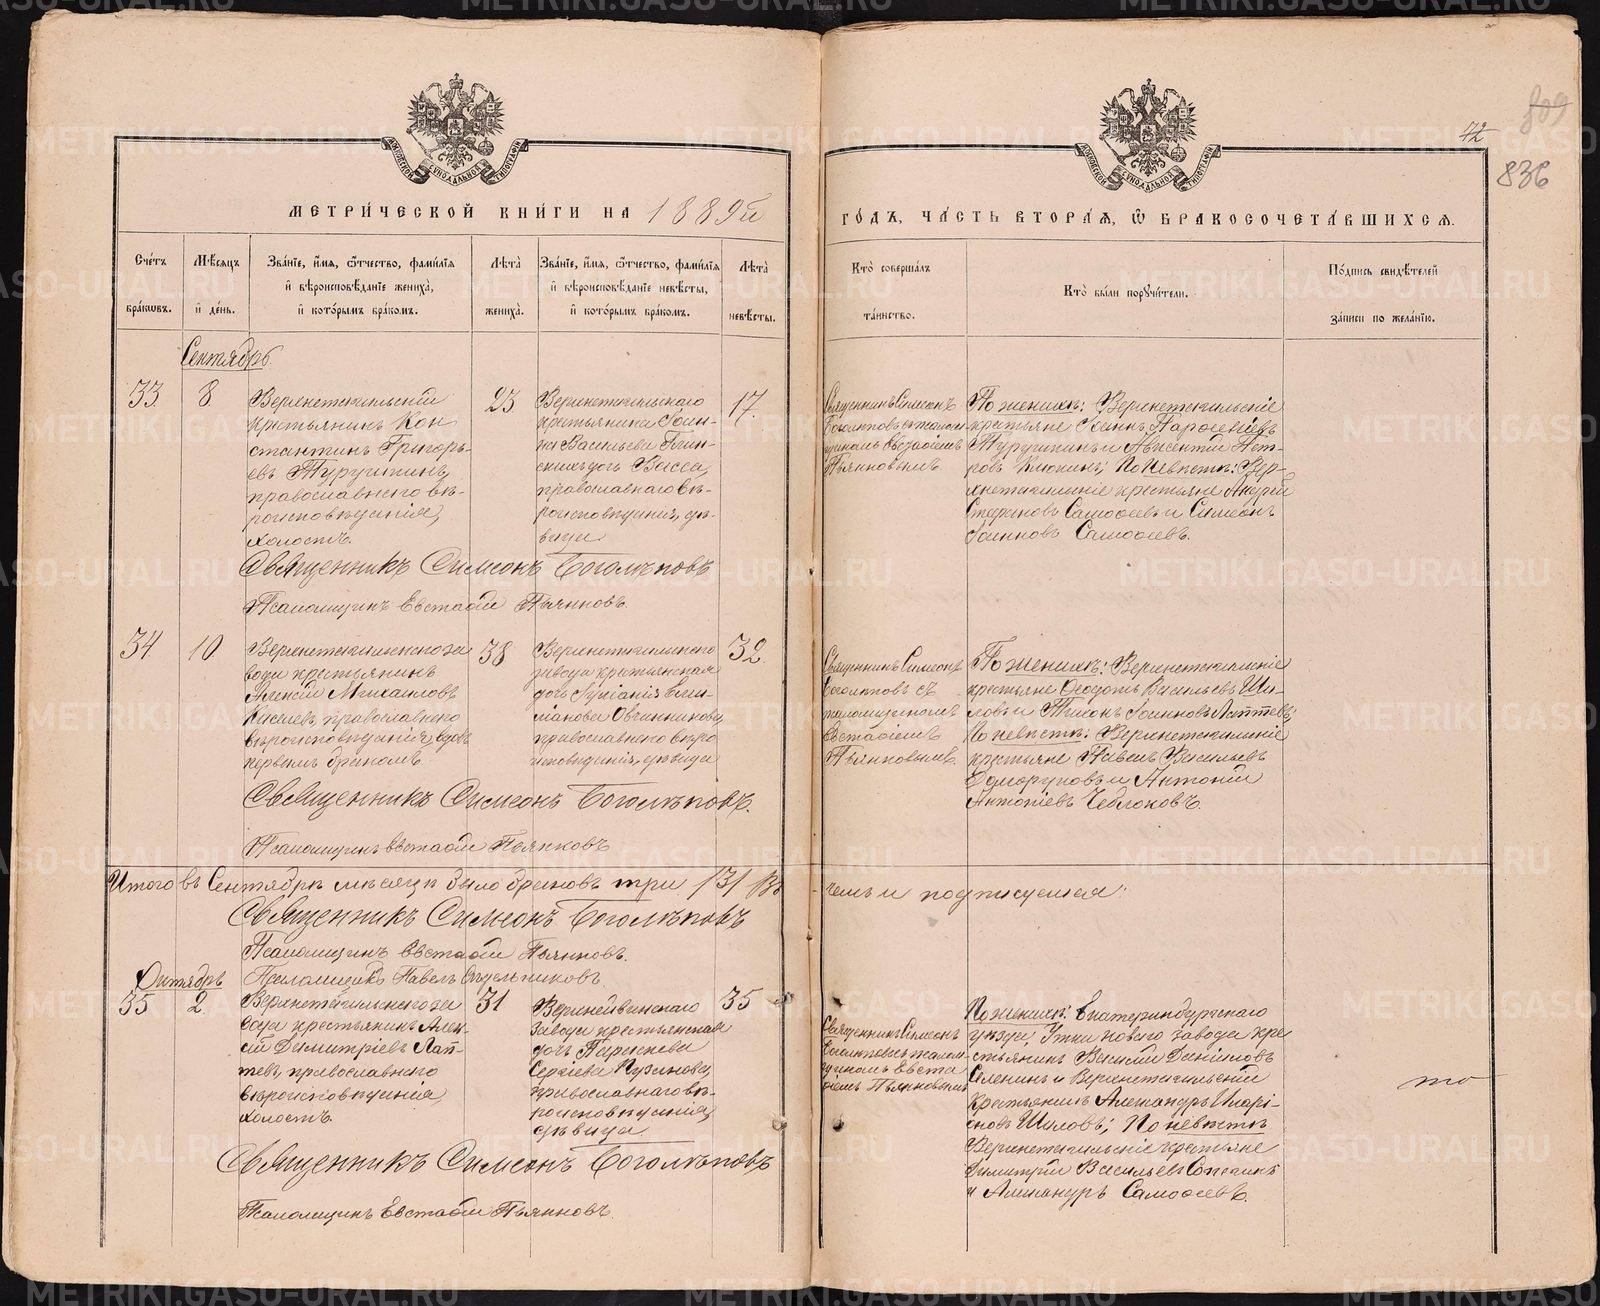 МЕТРИЧЕСКОЙ КНИГИ НА 1889й
ГОДЪ, ЧАСТЬ ВТОРАЯ, Ѿ БРАКОСОЧЕТАВШИХСЯ.
42
809
836
Счетъ браковъ.
Мѣсяцъ и день.
Званіе, имя, ѿчество, фамилія и вѣроисповѣданіе жениха, и которымъ бракомъ.
Лѣта жениха.
Званіе, имя, ѿчество, фамилія и вѣроисповѣданіе невѣсты, и которымъ бракомъ.
Лѣта невѣсты.
Кто совершалъ таинство.
Кто были поручители.
Подпись свидѣтелей записи по желанію.
Сентябрь
33
8
Верхнетагильскій
крестьянинъ Кон-
стантинъ Григорь-
евъ Турушкинъ,
православнаго вѣ-
роисповѣданія,
холостъ.
23
Верхнетагильскаго
крестьянина Іоан-
на Васильева
дочь Васса,
православнаго вѣ-
роисповѣданія, дѣ-
вица
17.
Священникъ Симеонъ
Боголѣповъ съ псалом-
щикомъ Евстафіемъ
Пьянковымъ
По женихѣ: Верхнетагильскіе
крестьяне Іоаннъ
Турушкинъ и Авксентій Пет-
ровъ Клюкинъ; По невѣстѣ: Вер-
хнетагильскіе крестьяне Андрей
Стефановъ Самофѣевъ и Симеонъ
Іоанновъ Самофѣевъ.
Священникъ Симеонъ Боголѣповъ
Псаломщикъ Евстафій Пьянковъ.
34
10
Верхнетагильскаго за-
вода крестьянинъ
Алексій Михаиловъ
Киселевъ, православнаго
вѣроисповѣданія, вдовъ
первымъ бракомъ
38
Верхнетагильскаго
завода крестьянская
дочь Еми-
ліанова Овчинникова,
православнаго вѣро
исповѣданія, дѣвица
32
Священникъ Симеонъ
Боголѣповъ съ
псаломщикомъ
Евстафіемъ
Пьянковымъ
По женихѣ: Верхнетагильскіе
крестьяне Ѳеодотъ Васильевъ Ши-
ловъ и Тихонъ Іоанновъ Лаптевъ;
По невѣстѣ: Верхнетагильскіе
крестьяне Павелъ Васильевъ
Доморуковъ и Антоній
Антоніевъ Чеблоковъ.
Священникъ Симеонъ Боголѣповъ.
Псаломщикъ Евстафій Пьянковъ
Итого въ Сентябрѣ мѣсяцѣ было браковъ три /3/ Въ
чемъ и подписуемся:
Священникъ Симеонъ Боголѣповъ
Псаломщикъ Евстафій Пьянковъ.
Псаломщикъ Павелъ
Октябрь
35
2
Верхнетагильскаго за
вода крестьянинъ Алек-
сій Димитріевъ Лап-
тевъ, православнаго
вѣроисповѣданія
холостъ.
31
Верхнейвинскаго
завода крестьянская
дочь Параскева
Сергіева Пузанова,
православнаго вѣ-
роисповѣданія,
дѣвица
35
Священникъ Симеонъ
Боголѣповъ съ псалом-
щикомъ Евста
фіемъ Пьянковымъ
По женихѣ: Екатеринбургскаго
уѣзда, Уткинскаго завода кре-
стьянинъ Василій Даниловъ
Селенинъ и Верхнетагильскій
крестьянинъ Александръ Иларі-
оновъ Шиловъ; По невѣстѣ
Верхнетагильскіе крестьяне
Димитрій Васильевъ
и Александръ Самофѣевъ
Священникъ Симеонъ Боголѣповъ
Псаломщикъ Евстафій Пьянковъ.